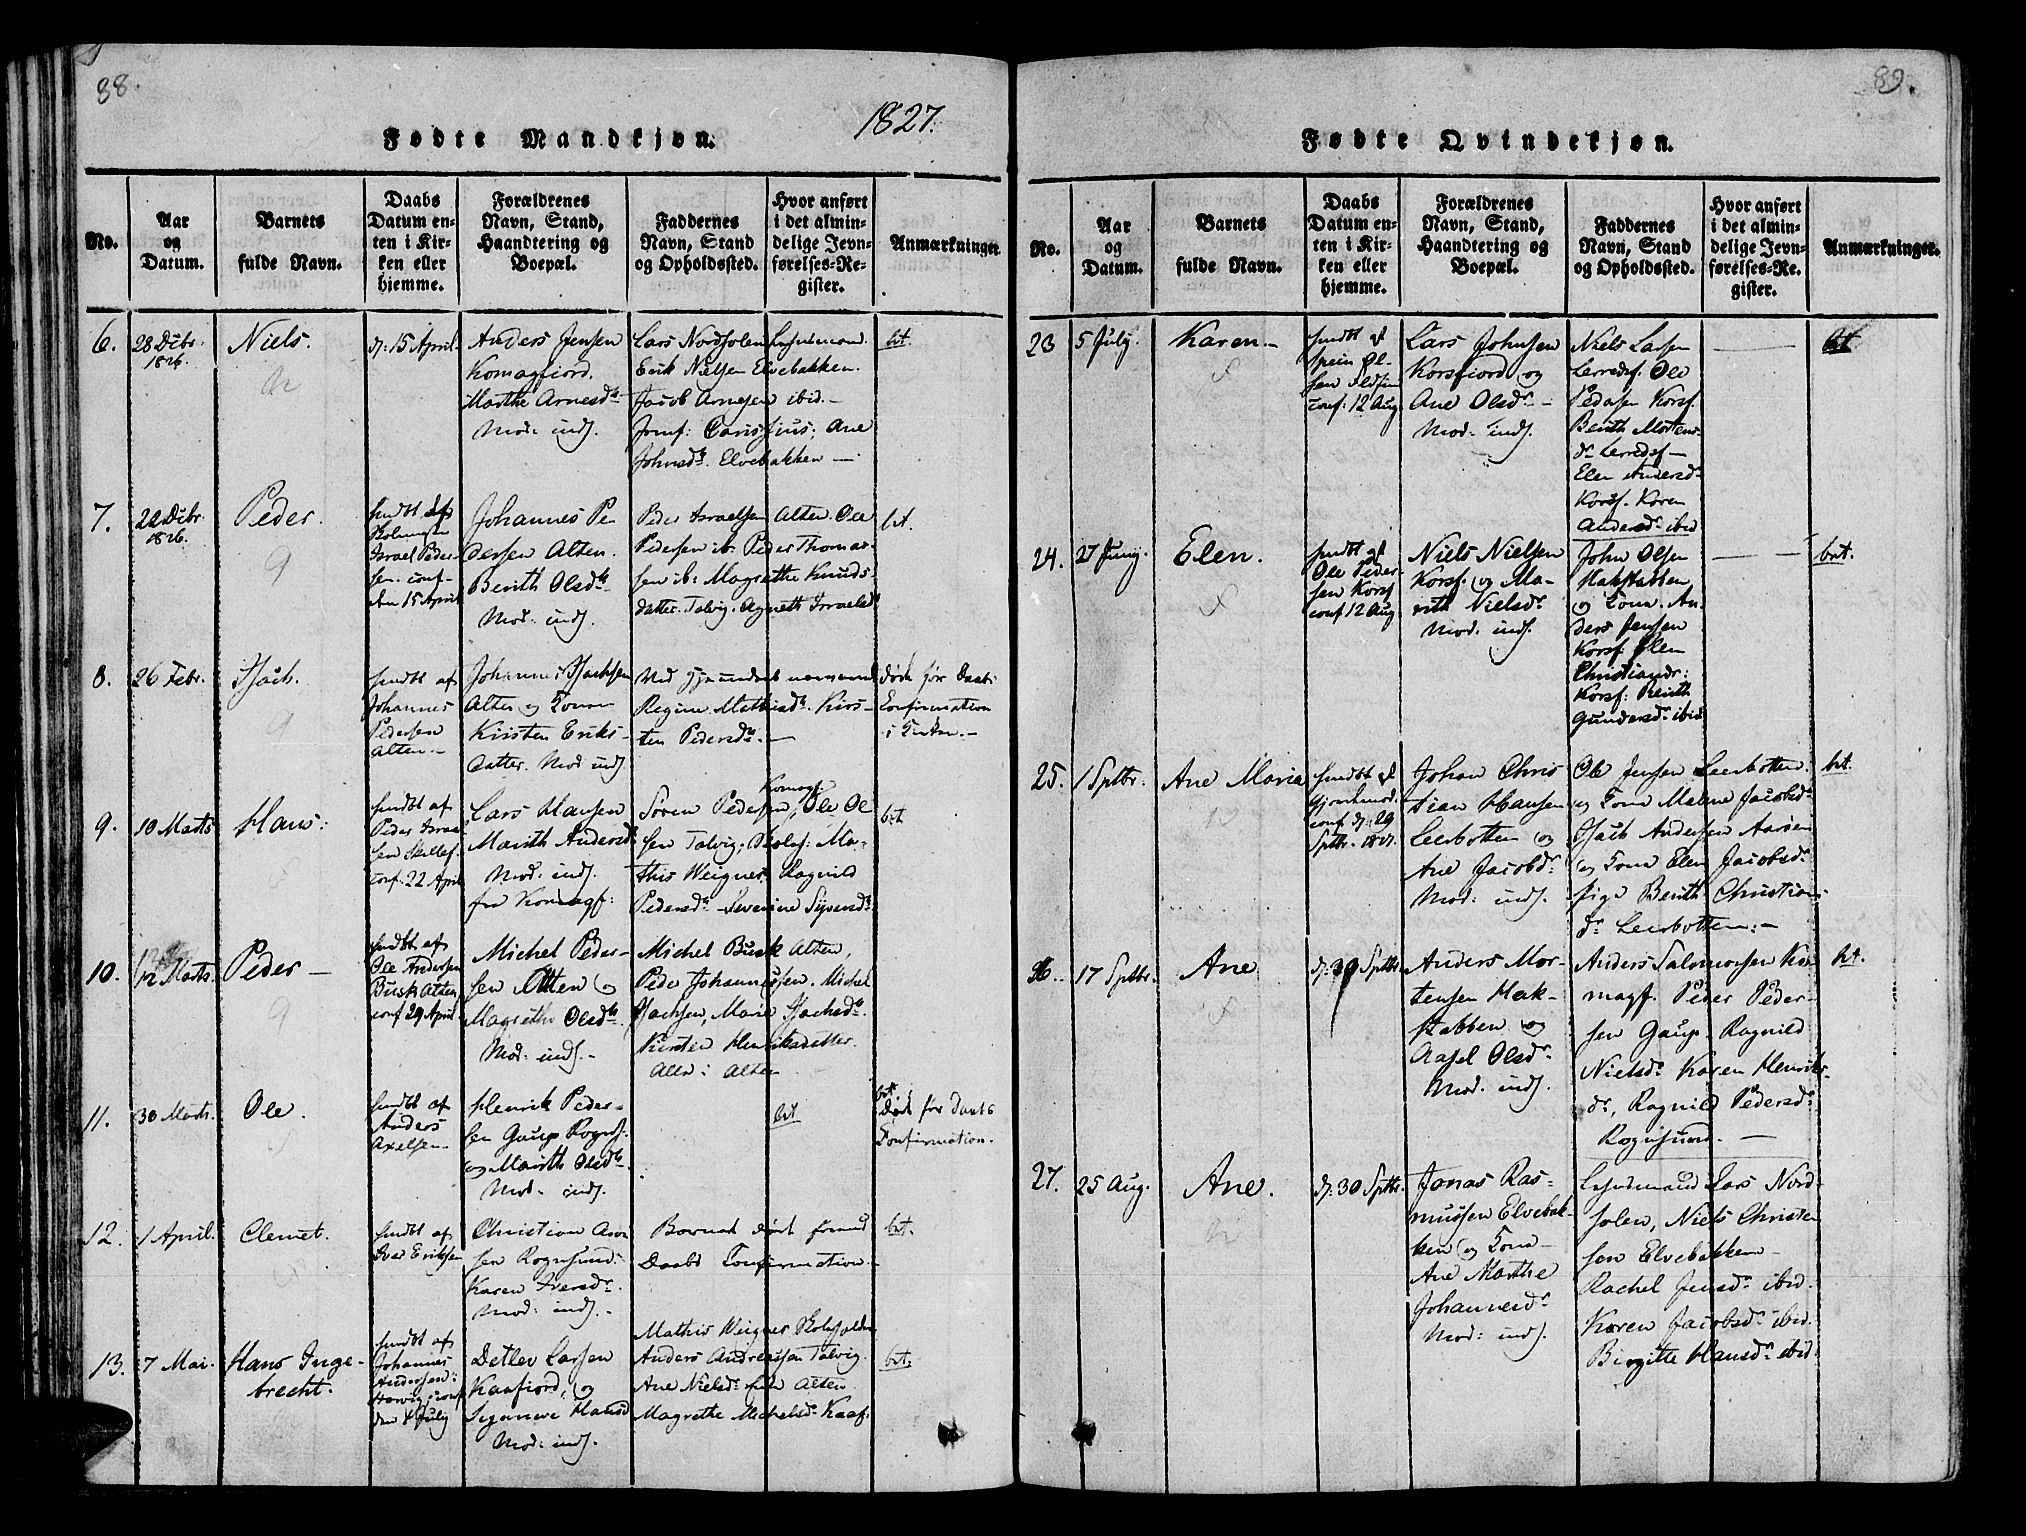 88.
1827.
Fødte Mandkjøn.
No.
Aar
og
Datum.
Barnets
fulde Navn.
Daabs
Datum en-
ten i Kir-
ken eller
hjemme.
Forældrenes
Navn, Stand,
Haandtering og
Boepæl.
Faddernes
Navn, Stand
og Opholdssted.
Hvor anført
i det almin-
delige Jevn-
førelses-Re-
gister.
Anmærkninger.
6.
28 Debr.
1826.
Niels.
d: 15 April.
Anders Jensen
Komagfiord.
Marthe Arnesdtr
Mod: inds.
Lars Nordfolen
Erik Nielsen Elvebakken.
Jacob Arnesen ibid.
Jomf: Ane
Johnsdtr. Elvebakken
bt.
7.
22 Debr.
1826.
Peder.
Israel Peder-
sen. conf
den 15 April
Johannes Pe
dersen Alten.
Berith Olsdtr
Mod: inds.
Peder Israelsen Alten. Ole
Pedersen ib. Peder Thomas-
sen ib: Magrethe Knuds-
datter Talvig. Agneth Israelsd
bt.
8.
26 Febr.
Isach.
hiemdt af
Johannes
Pedersen
Alten.
Johannes Isachsen
Alten og Kone
Kirsten Eriks-
datter. Mod inds
Regine Mathisdtr. Kirs-
ten Pedersdtr.
Døde før Daabs
Confirmation
9.
10 Marts
Hans:
hiemdt af
Peder Israel
sen
conf. 22 April
Lars Hansen
Marith Andersd
Mod: inds.
fra Komagf:
Komagf.
Søren Pedersen, Ole Ol
sen Talvig; Skolef: Ma-
this Weigner, Ragnild
Pedersdtr Severine Syversdtr
bt
10.
12 Marts.
Peder
hiemdt af
Ole Andersen
Busk Alten,
conf 29 April.
Michel Peder-
sen Alten og
Magrethe Olsdtr.
Mod: inds.
Michel Busk Alten,
Peder Johannessen. Michel
Isachsen, Marie Isachsd.
Kirsten Henriksdatter
Alle i Alten
11.
30 Marts.
Ole.
hiemdt af
Anders
Axelsen.
Henrik Peder-
sen Gaup Rognsf.
og Marith Olsdtr.
Mod: inds.
bt
bt
Døde før Daabs
Confirmation.
12.
1 April.
Clemet.
hiemdt af
Ivar Eriksen
Christian
sen Rognsund
Karen Iversdr.
Mod: inds.
Barnet døde førend
Daabs Confirmation.
bt.
13.
7 Mai.
Hans Inge-
brecht.
hiemdt af
Johannes
Andersen
conf
den 8 July
Detlev Larsen
Kaafiord, og
Hansd
Mod: inds.
Mathis Weigner Skoleholder
Anders Andreassen Talvig.
Ane Nielsdr Alten
Magrethe Michelsdr Kaaf:
bt.
89.
Fødte Qvindekjøn.
No.
Aar
og
Datum.
Barnets
fulde Navn.
Daabs
Datum en-
ten i Kir-
ken eller
hjemme.
Forældrenes
Navn, Stand,
Haandtering og
Boepæl.
Faddernes
Navn, Stand
og Opholdssted.
Hvor anført
i det almin-
delige Jevn-
førelses-Re-
gister.
Anmærkninger.
23
5 July.
Karen.
conf: 12 Aug
Lars Johnsen
Korsfiord og
Ane Olsdr
Mod: inds.
Niels Larsen
Lerredsf. Ole
Pedersen Korsf.
Berith Mortens
dr Lerredsf
Elen Andersd
Korsf. Karen
Andersdr ibid
bt
24.
27 Juny.
Elen.
hiemdt af
Ole Peder-
sen Korsf
conf 12 Aug
Niels Nielsen
Korsf. og Ma-
rith Nielsdr
Mod: inds.
John Olsen
Hakstabben,
og Kone. An-
ders Jensen
Korsf. Elen
Christiansdr:
Korsf: Berith
Gundersdr ibid
bt.
25.
1 Septbr.
Ane Maria
hiemdt af
conf d: 29
Septbr. 1827.
Johan Chris
tian Hansen
Leerbotten og
Ane Jacobdr
Mod: inds.
Ole Jensen Leerbotten.
og Kone Malene Jacobsdr
Isach Andersen
og Kone Elen Jacobsdr.
pige Berith Christian-
dr Leerbotten:
bt.
26.
17 Septbr.
Ane
d: 29 Septbr.
Anders Mor-
tensen Hak-
stabben og
Axsel Olsdr
Mod: inds.
Anders Salomonsen Ko
magf. Peder Peder-
sen Gaup. Ragnild
Nielsdr Karen Henriks-
dr, Ragnild Pedersdr
Rognsund.
bt.
27.
25 Aug.
Ane.
d: 30 Septbr.
Jonas Ras-
mussen Elvebak-
ken og Kone
Ane Marthe
Johannesdr
Mod: inds.
Lehnsmand Lars Nord-
folen, Niels Christen
sen Elvebakken
Rachel Jensdr ibid.
Karen Jacobsdr ibid.
Birgitte Hansdr ibid.